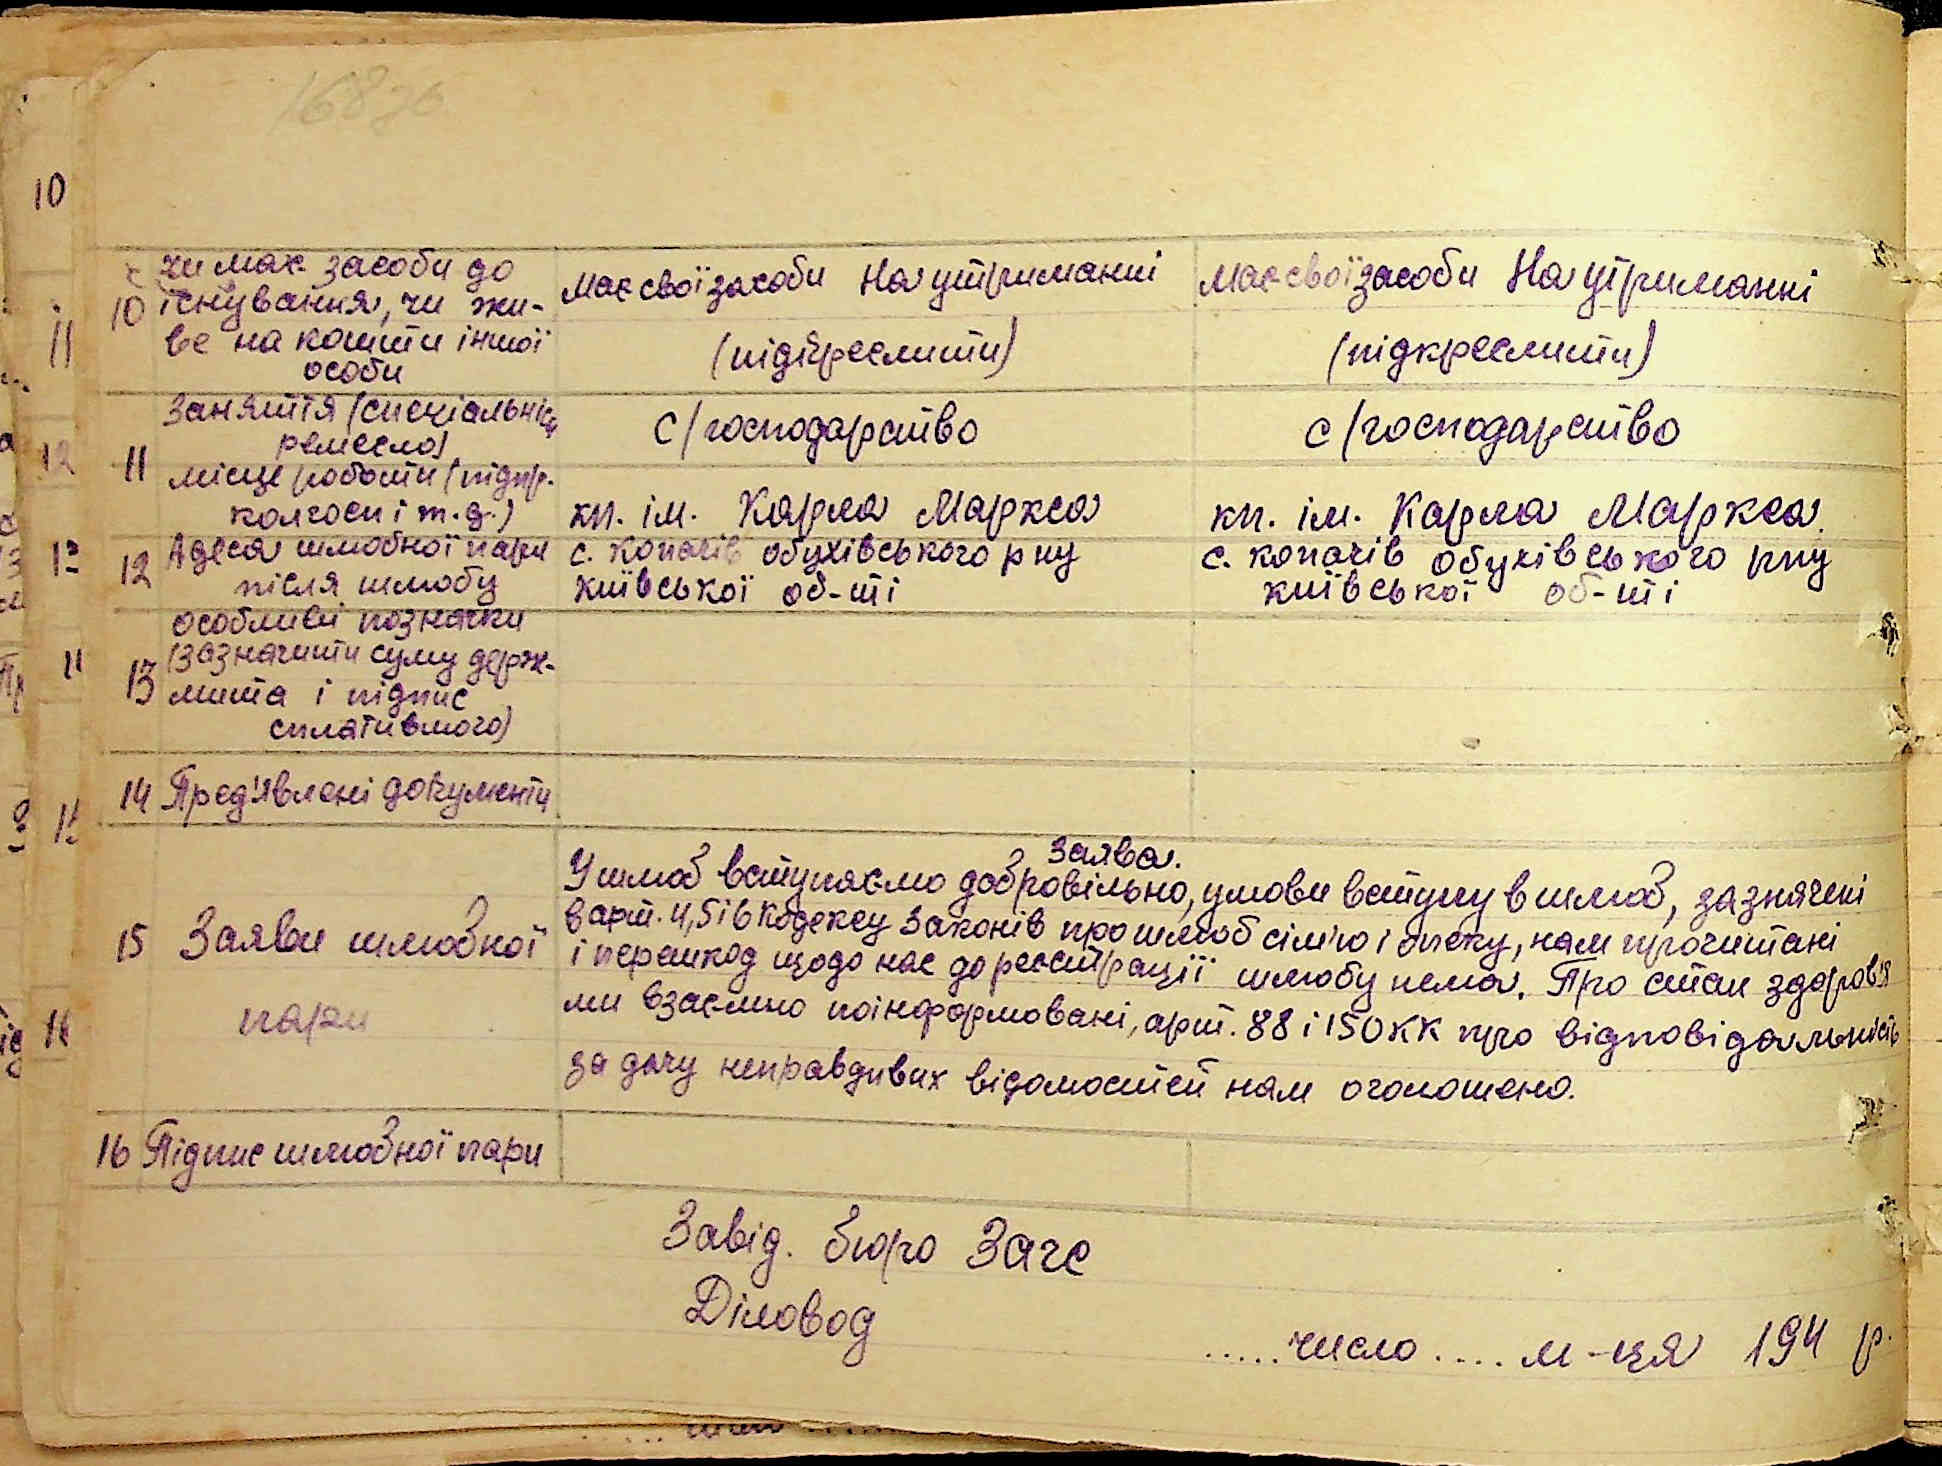 168 зв
10
чи має засоби до
існування, чи жи-
ве на кошти іншої
особи
має свої засоби На утриманні
(підкреслити)
має свої засоби На утриманні
(підкреслити)
11
Заняття (спеціальніс.
ремесло)
місце роботи (підпр.
колгосп і т.д.)
с/господарство
кп. ім. Карла Маркса
с/господарство
кп. ім. Карла Маркса
12
Адеса шлюбної пари
після шлюбу
с. Копачів обухівського рну
київської об-ті
с. копачів обухівського рну
київської об-ті
13
особливі позначки
(зазначити суму держ-
мита і підпис
сплатившого)
14 Пред'явлені документи
15 Заяви шлюбної
пари
Заява.
У шлюб вступяємо добровільно, умови вступу в шлюб, зазначені
в арт. 4,5 і 6 Кодексу Законів про шлюб сім'ю і опеку, нам прочитані
і перешкод щодо нас до реєстрації шлюбу нема. Про стан здоров'я
ми взаємно поінформовані, арт. 88 і 150 КК про відповідальність
за дачу неправдивих відомостей нам оголошено.
16 Підпис шлюбної пари
Завід. бюро Загс
Діловод
.....число.... м-ця 194 р.